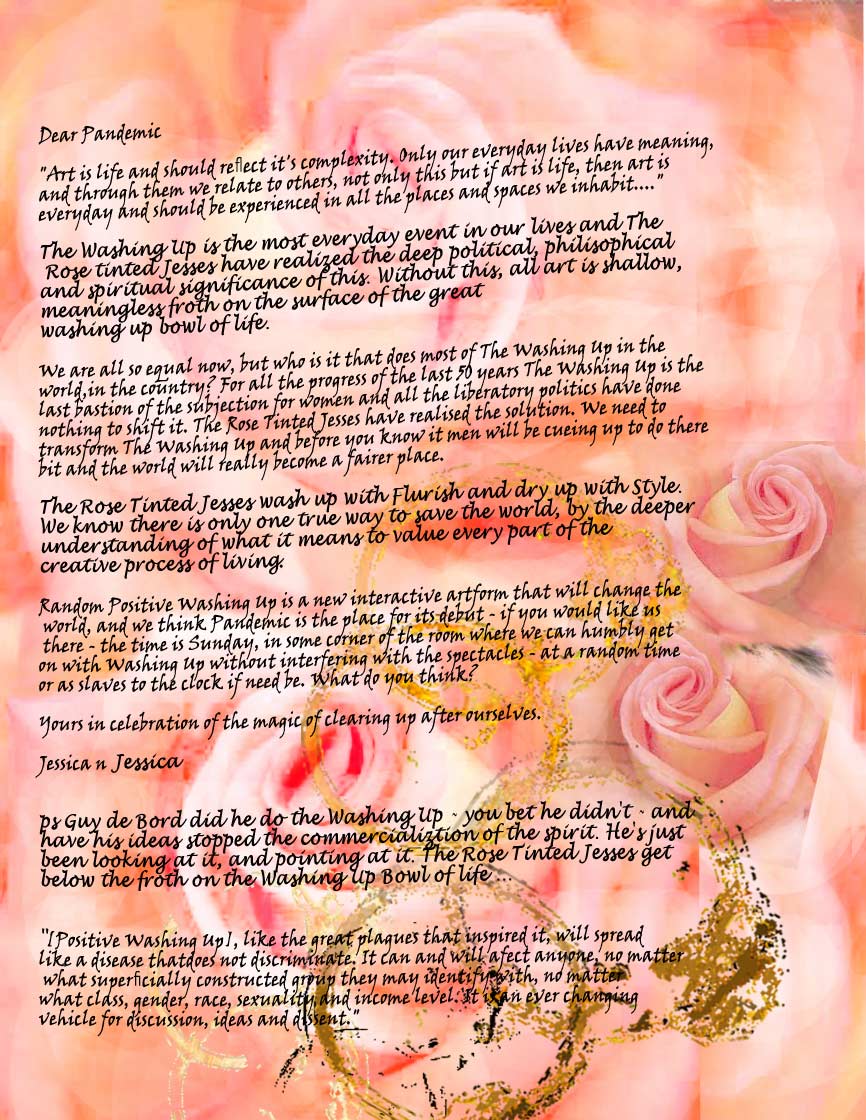 Dear Pandemic
"Art is life and should reflect it's complexity. Only our everyday lives have meaning,
and through them we relate to others, not only this but if art is life, then art is
everyday and should be experienced in all the places and spaces we inhabit...."
The Washing Up is the most everyday event in our lives and The
Rose tinted Jesses have realized the deep political, philisophical
and spiritual significance of this. Without this, all art is shallow,
meaningless froth on the surface of the great
washing up bowl of life.
We are all so equal now, but who is it that does most of The Washing Up in the
world,in the country? For all the progress of the last 50 years The Washing Up is the
last bastion of the subjection for women and all the liberatory politics have done
nothing to shift it. The Rose Tinted Jesses have realised the solution. We need to
transform The Washing Up and before you know it men will be cueing up to do there
bit and the world will really become a fairer place.
The Rose Tinted Jesses wash up with Flurish and dry up with Style.
We know there is only one true way to save the world, by the deeper
understanding of what it means to value every part of the
creative process of living.
Random Positive Washing Up is a new interactive artform that will change the
world, and we think Pandemic is the place for its debut - if you would like us
there - the time is Sunday, in some corner of the room where we can humbly get
on with Washing Up without interfering with the spectacles - at a random time
or as slaves to the clock if need be. What do you think?
Yours in celebration of the magic of clearing up after ourselves.
Jessica n Jessica
ps Guy de Bord did he do the Washing Up - you bet he didn't - and
have his ideas stopped the commercializtion of the spirit. He's just
been looking at it, and pointing at it. The Rose Tinted Jesses get
below the froth on the Washing Up Bowl of life ...
"[Positive Washing Up], like the great plagues that inspired it, will spread
like a disease thatdoes not discriminate. It can and will afect anyone, no matter
what superficially constructed group they may identify with, no matter
what class, gender, race, sexuality and income level. It is an ever changing
vehicle for discussion, ideas and dissent."